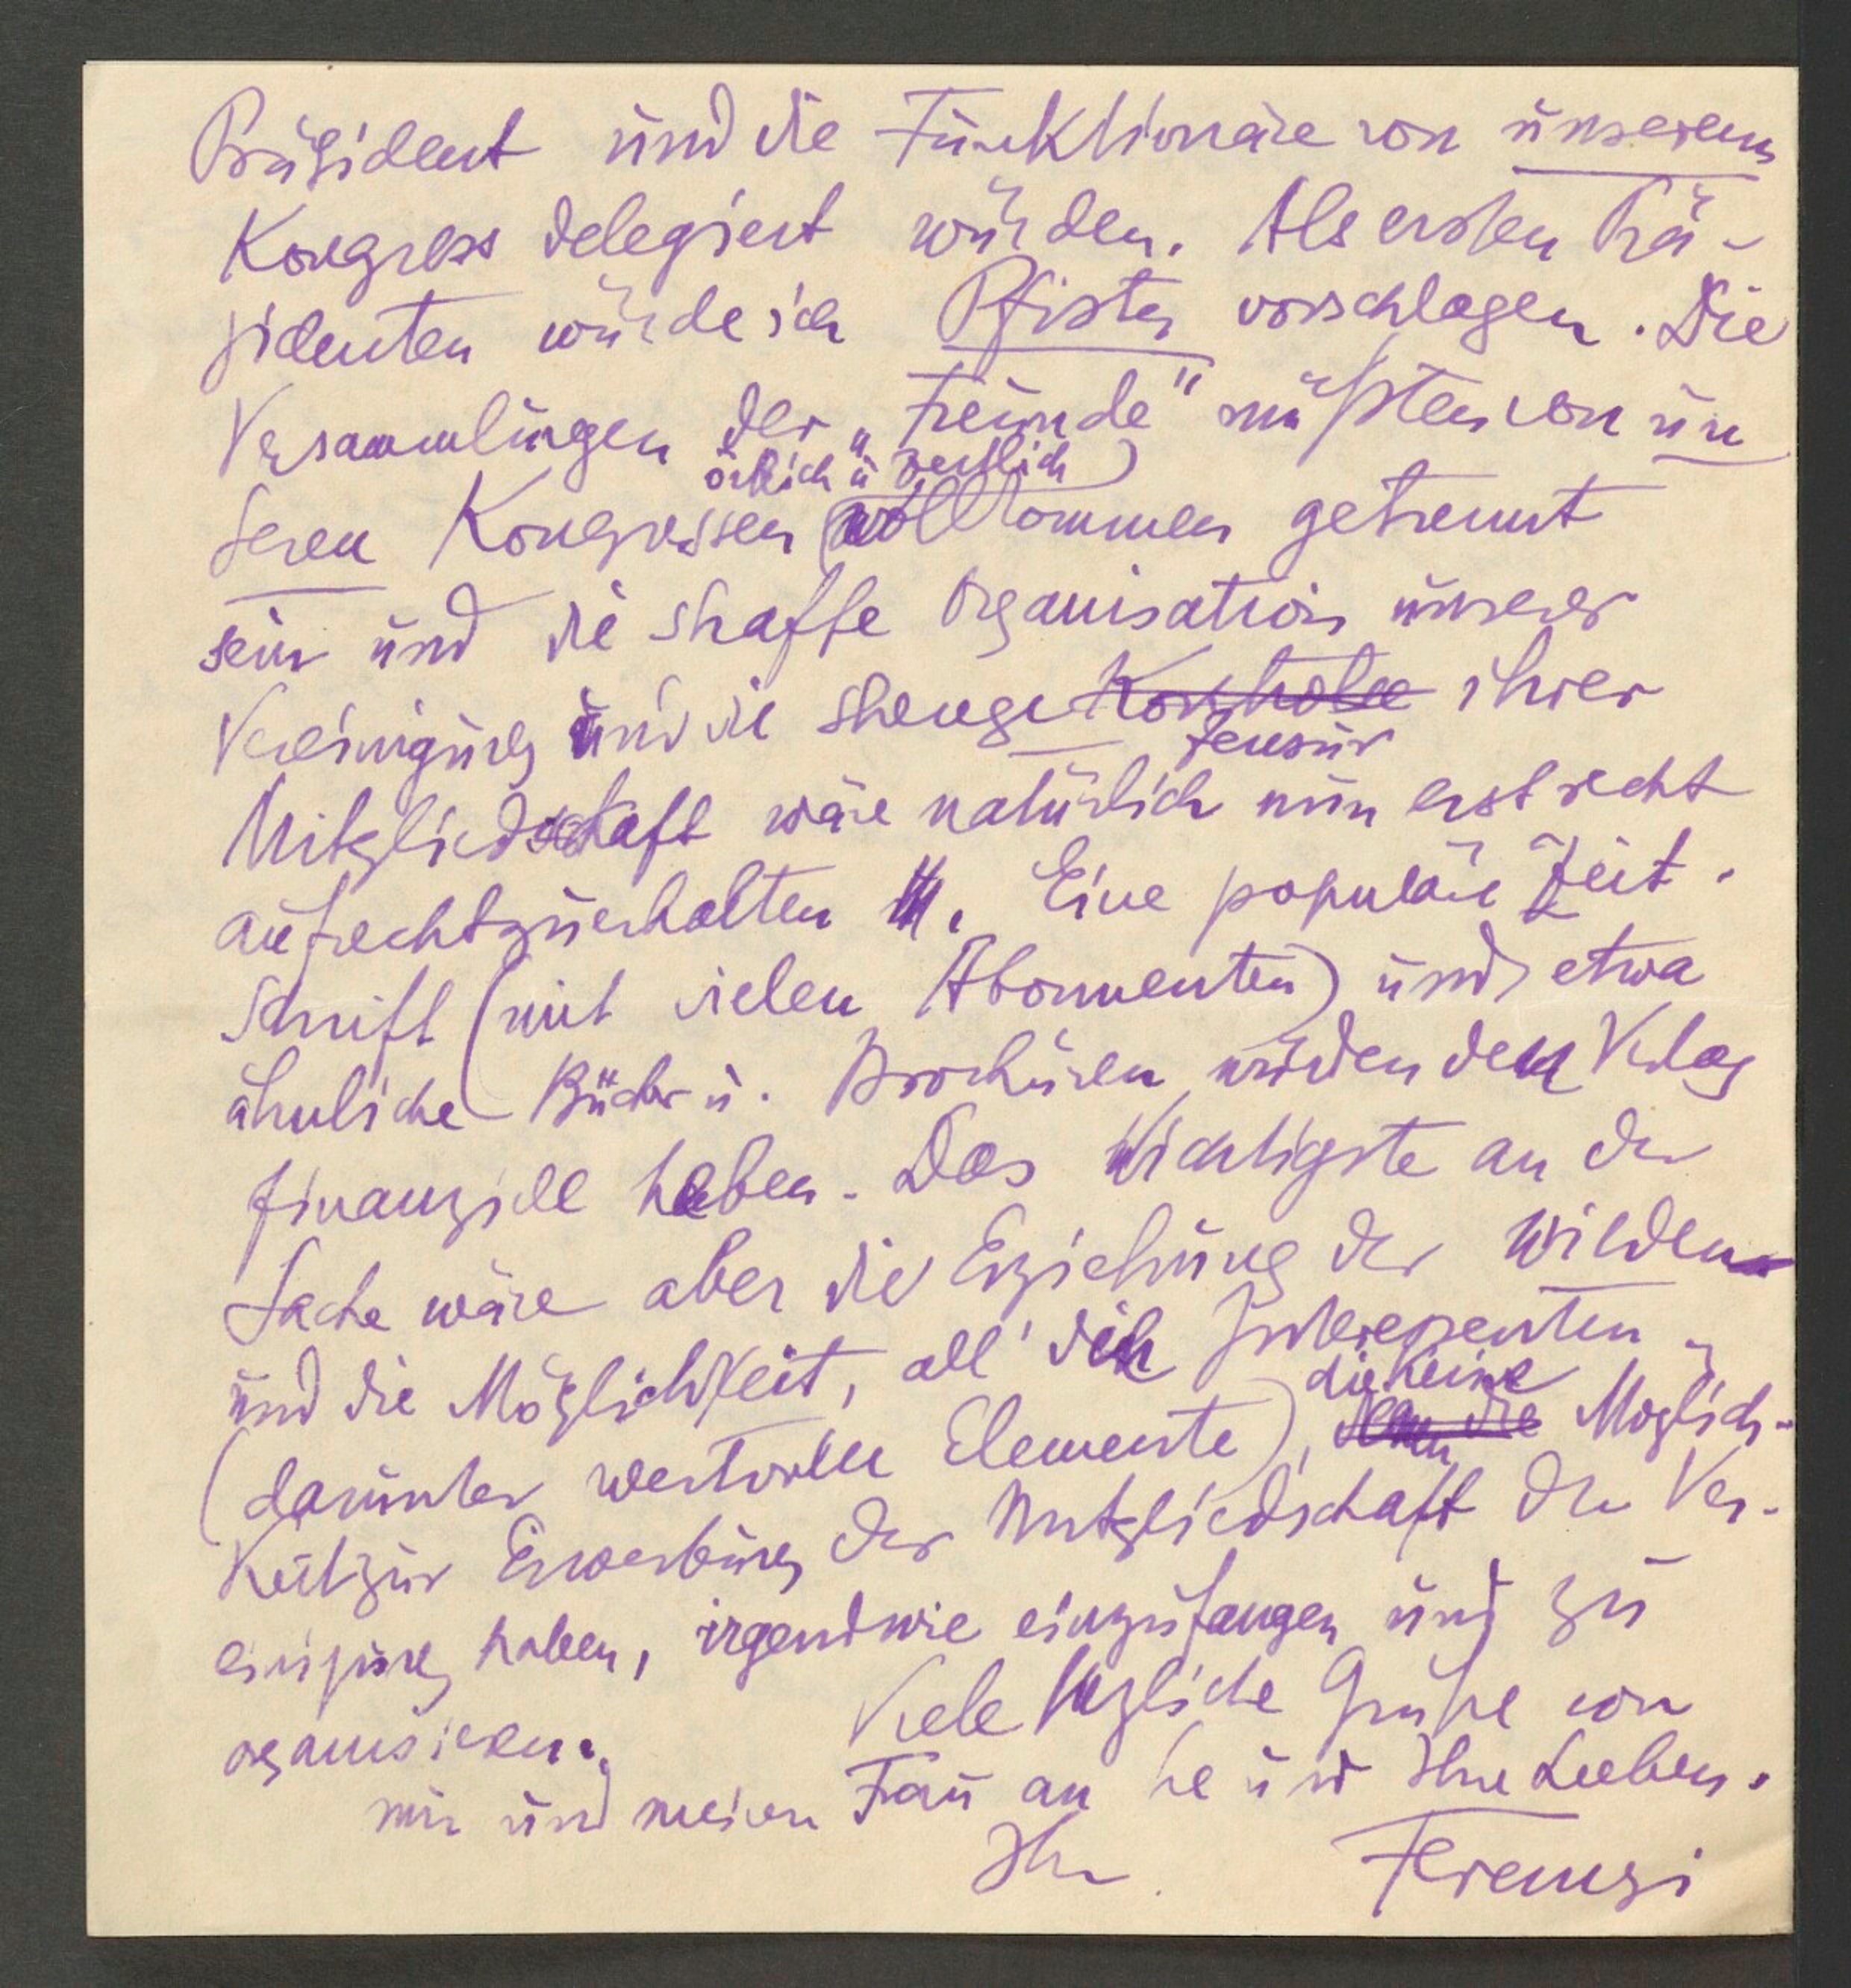 Präsident und die Funktionäre von unserem
Kongress delegiert würden. Als ersten Prä-
sidenten würde ich Pfister vorschlagen. Die
Versammlungen der „Freunde" müßten von un
örtlich u zeitlich
seren Kongressen (vollkommen getrennt
sein und die straffe Organisation unserer
Vereinigung und die strenge Kontrolle ihrer
Zensur
Mitgliedschaft wäre natürlich nun erst recht
aufrechtzuerhalten. Eine populäre Zeit-
schrift (mit vielen Abonnenten) und etwa
ähnliche Bücher u. Brochüren würden den Verlag
finanziell heben. Das Wichtigste an der
Sache wäre aber die Erziehung der Wilden
und die Möglichkeit, all' die Interessenten
die keine
(darunter wertvolle Elemente), denen die Möglich-
keit zur Erwerbung der Mitgliedschaft der Ver-
einigung haben, irgendwie einzufangen und zu
organisieren.
Viele herzliche Grüße von
mir und meiner Frau an Sie und Ihre Lieben.
Ihr Ferenczi